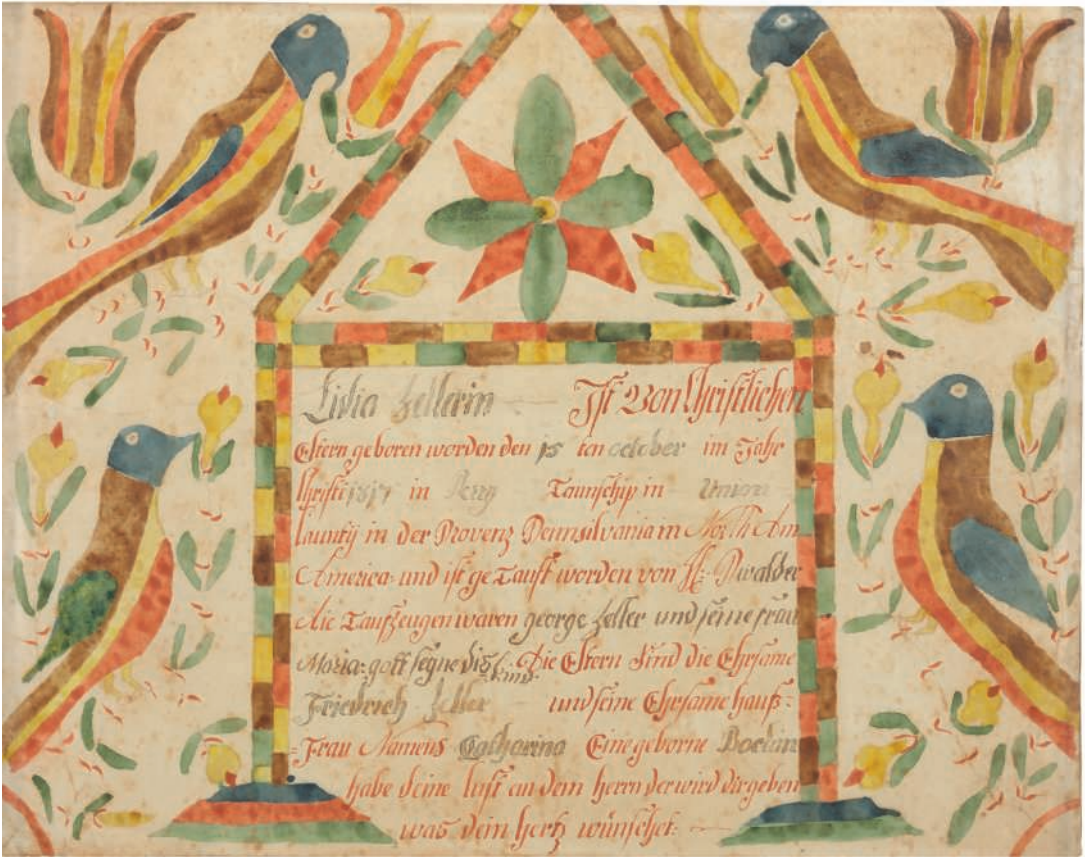 Lidia Zellerin Ist Von Christlichen
Eltern geboren worden den 15 ten october im Jahr
Christi 1817 in Perry Taunschip in Union
Caunty in der Provenz Pennsilvania in North Am
America und ist getauft worden von H:
die Taufzeugen waren george Zeller und seine frau
Maria: gott segne dis kind. Die Eltern Sind die Ehrsame
Friedrich Zeller und seine Ehrsame hauß=
=Frau Namens Catharina Eine geborne
habe deine lust an dem herrn der wird dir geben
was dein hertz wünschet: